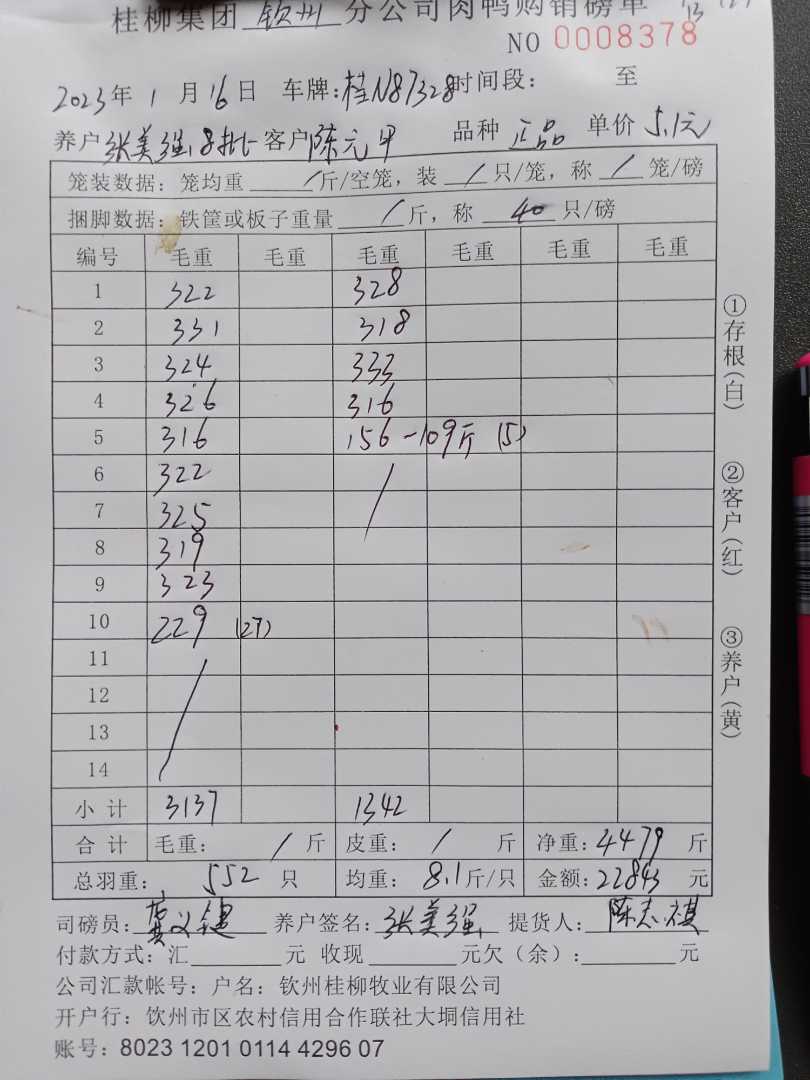 桂柳集团 钦州 分公司肉鸭购销磅单
NO 0008378
2023年 1月16日 车牌:桂N87328 时间段: 至
养户 张美强 8批 客户 陈元甲 品种 正品 单价 5.1元
笼装数据: 笼均重 / 斤/空笼, 装 / 只/笼, 称 / 笼/磅
捆脚数据: 铁筐或板子重量 / 斤, 称 40 只/磅
编号 毛重 毛重 毛重 毛重 毛重 毛重
1 322 328
2 331 318
3 324 333
4 326 316
5 316 156-109斤 (5)
6 322 /
7 325
8 319
9 323
10 229 (27)
11 /
12
13
14
小计 3137 1342
合计 毛重: / 斤 皮重: / 斤 净重: 4479 斤
总羽重: 552 只 均重: 8.1斤/只 金额: 22843 元
司磅员: 养户签名: 张美强 提货人: 陈志祺
付款方式: 汇 元 收现 元欠(余): 元
公司汇款帐号: 户名: 钦州桂柳牧业有限公司
开户行: 钦州市区农村信用合作联社大垌信用社
账号: 8023 1201 0114 4296 07
①存根(白)
②客户(红)
③养户(黄)